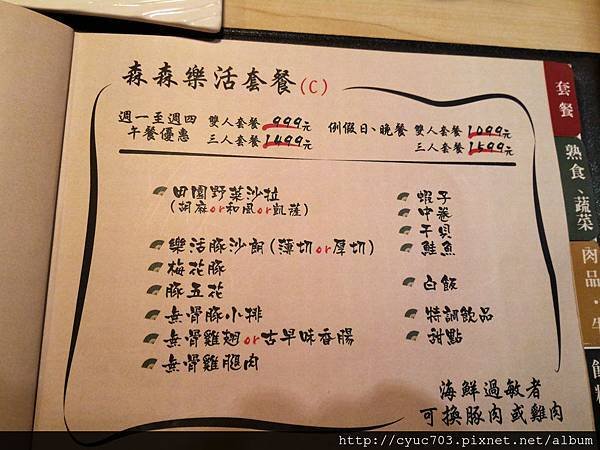 森森樂活套餐(C)
週一至週四
午餐優惠
雙人套餐 999元
三人套餐 1499元
例假日、晚餐
雙人套餐 1099元
三人套餐 1599元
田園野菜沙拉
(胡麻or和風or凱薩)
樂活豚沙朗(薄切or厚切)
梅花豚
豚五花
無骨豚小排
無骨雞翅or古早味香腸
無骨雞腿肉
蝦子
中卷
干貝
鮭魚
白飯
特調飲品
甜點
海鮮過敏者
可換豚肉或雞肉
套餐
熟食、蔬菜
肉品
http://cyuc703.pixnet.net/album